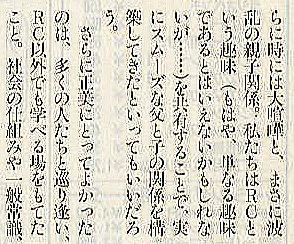 らに時には大喧嘩と、まさに波
乱の親子関係。私たちはRCと
いう趣味(もはや、単なる趣味
であるとはいえないかもしれな
いが……)を共有することで、実
にスムーズな父と子の関係を構
築してきたといってもいいだろ
う。
さらに正美にとってよかった
のは、多くの人たちと巡り逢い、
RC以外でも学べる場をもてた
こと。社会の仕組みや一般常識、